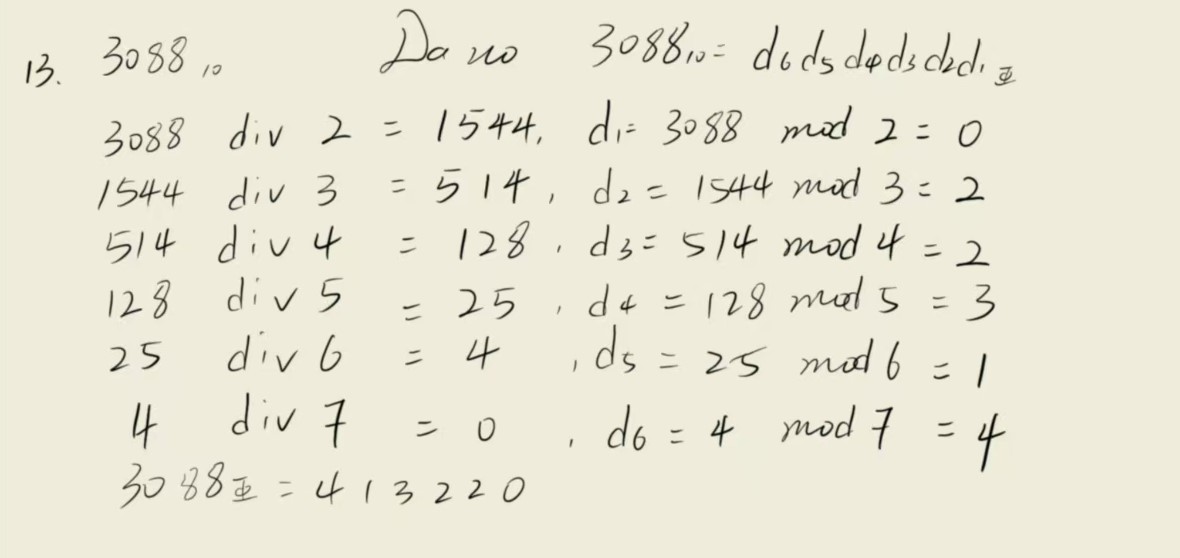 13. 3088₁₀ Da no 3088₁₀ = d₆d₅d₄d₃d₂d₁
3088 div 2 = 1544, d₁ = 3088 mod 2 = 0
1544 div 3 = 514, d₂ = 1544 mod 3 = 2
514 div 4 = 128, d₃ = 514 mod 4 = 2
128 div 5 = 25, d₄ = 128 mod 5 = 3
25 div 6 = 4, d₅ = 25 mod 6 = 1
4 div 7 = 0, d₆ = 4 mod 7 = 4
3088 = 413220